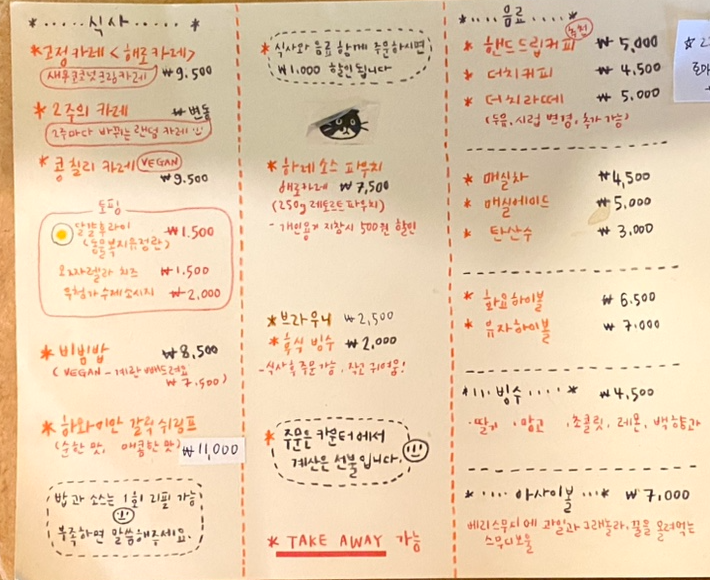 *・・・・ 식사 ・・・・ *
* 고정카레 <해로카레>
새우코코넛크림카레 ₩9.500
* 2주의 카레 ₩ 변동
2주마다 바뀌는 랜덤 카레
* 콩칠리 카레 VEGAN
₩9.500
토핑
달걀후라이 ₩1.500
(동물복지유정란)
모짜렐라 치즈 ₩1.500
무첨가수제소시지 ₩2.000
* 비빔밥 ₩8,500
(VEGAN - 계란 빼드려요
₩7,500)
* 하와이안 갈릭쉬림프
(순한맛, 매콤한맛) ₩11,000
밥과 소스는 1회 리필 가능
부족하면 말씀해주세요.
* 식사와 음료 함께 주문하시면
₩1.000 할인됩니다
* 하레 소스 파우치
해로카레 ₩7,500
(250g 레토르트파우치)
- 개인용기 지참시 500원 할인
* 브라우니 ₩2,500
* 후식 빙수 ₩2,000
- 식사 후 주문가능, 작고 귀여움!
* 주문은 카운터에서
계산은 선불입니다.
* TAKE AWAY 가능
*・・・・ 음료 ・・・・ *
* 핸드드립커피 ₩5,000
* 더치커피 ₩4,500
* 더치라떼 ₩5,000
(두유, 시럽 변경, 추가 가능)
* 매실차 ₩4,500
* 매실에이드 ₩5,000
* 탄산수 ₩3,000
* 화요하이볼 6.500
* 유자하이볼 ₩7.000
빙수 ・・・・ * ₩4,500
·딸기 ·망고 ·초콜릿, 레몬, 백향과
*・・・・ 아사이볼 ・・・* ₩7,000
베리스무디에 과일과 그래놀라, 꿀을 올려먹는
스무디보울